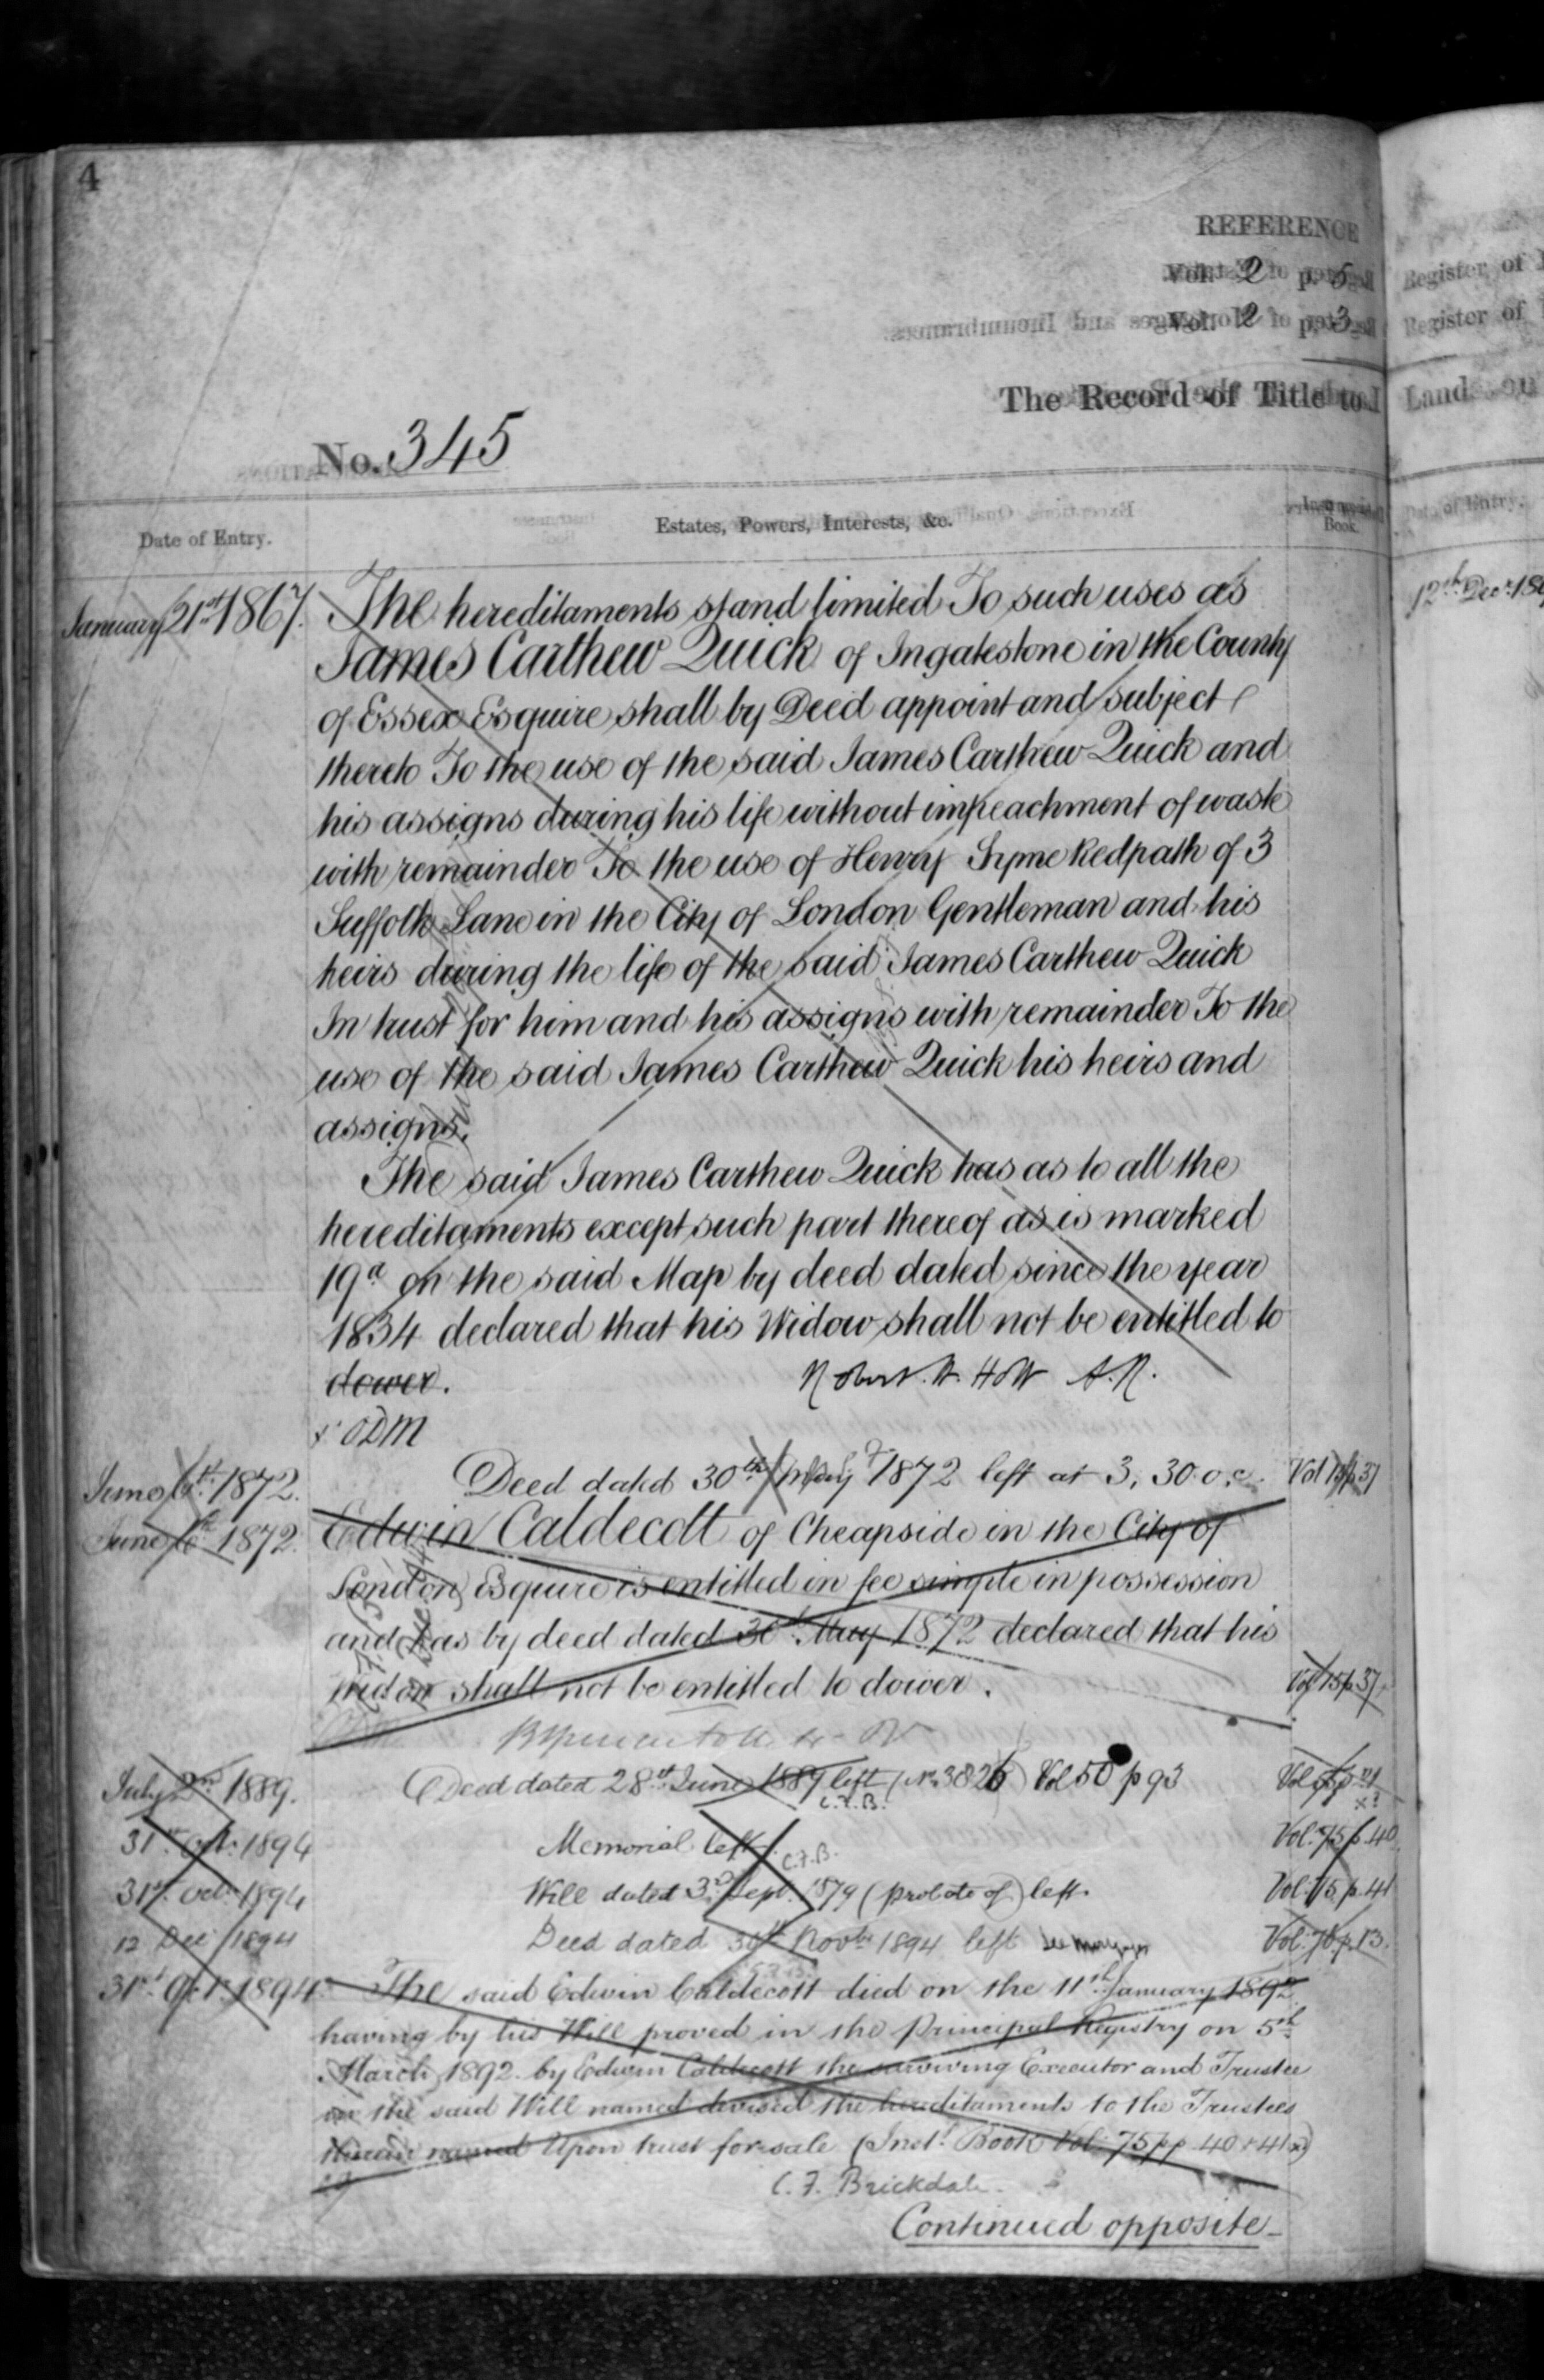 4
REFERENCE
Vol. 2 p. 5
Vol. 2 p. 3
Register of
Register of
The Record of Title to Land
No. 345
Date of Entry.
Estates, Powers, Interests, &c.
Book.
Date of Entry.
January 21st 1867. The hereditaments stand limited To such uses as
James Carthew Quick of Ingatestone in the County
of Essex Esquire shall by Deed appoint and subject
thereto To the use of the said James Carthew Quick and
his assigns during his life without impeachment of waste
with remainder To the use of Henry Syme Redpath of 3
Suffolk Lane in the City of London Gentleman and his
heirs during the life of the said James Carthew Quick
In trust for him and his assigns with remainder To the
use of the said James Carthew Quick his heirs and
assigns.
The said James Carthew Quick has as to all the
hereditaments except such part thereof as is marked
19a on the said Map by deed dated since the year
1834 declared that his Widow shall not be entitled to
dower. Robert. H. Holt A.R.
June 6th 1872. Deed dated 30th May 1872 left at 3, 30 o.c. Vol 15 p 37
June 6th 1872. Edwin Caldecott of Cheapside in the City of
London Esquire is entitled in fee simple in possession
and has by deed dated 30th May 1872 declared that his
widow shall not be entitled to dower. Vol 15 p 37
July 2nd 1889. Deed dated 28th June 1889 left (No. 3826) Vol 50 p 93
C.F.B.
31st Oct. 1894 Memorial left. C.F.B. Vol. 75 p. 40
31st Oct. 1894 Will dated 3rd Sept. 1879 (probate of) left. Vol. 75 p. 41
12 Dec 1894 Deed dated 30th Novbr 1894 left Vol. 76 p. 13.
31st Oct. 1894 The said Edwin Caldecott died on the 11th January 1892
having by his Will proved in the Principal Registry on 5th
March 1892 by Edwin Caldecott the surviving Executor and Trustee
in the said Will named devised the hereditaments to the Trustees
therein named Upon trust for sale (Inst. Book Vol. 75 pp 40 & 41)
C. F. Brickdale.
Continued opposite
12th Decr 186